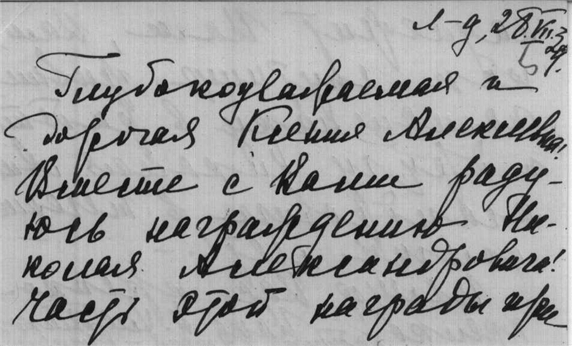 Л-д, 28.VII.
Глубокоуважаемая и
дорогая Ксения Алексеевна!
Вместе с Вами раду-
юсь награждению Ни-
колая Александровича!
Часть этой награды при